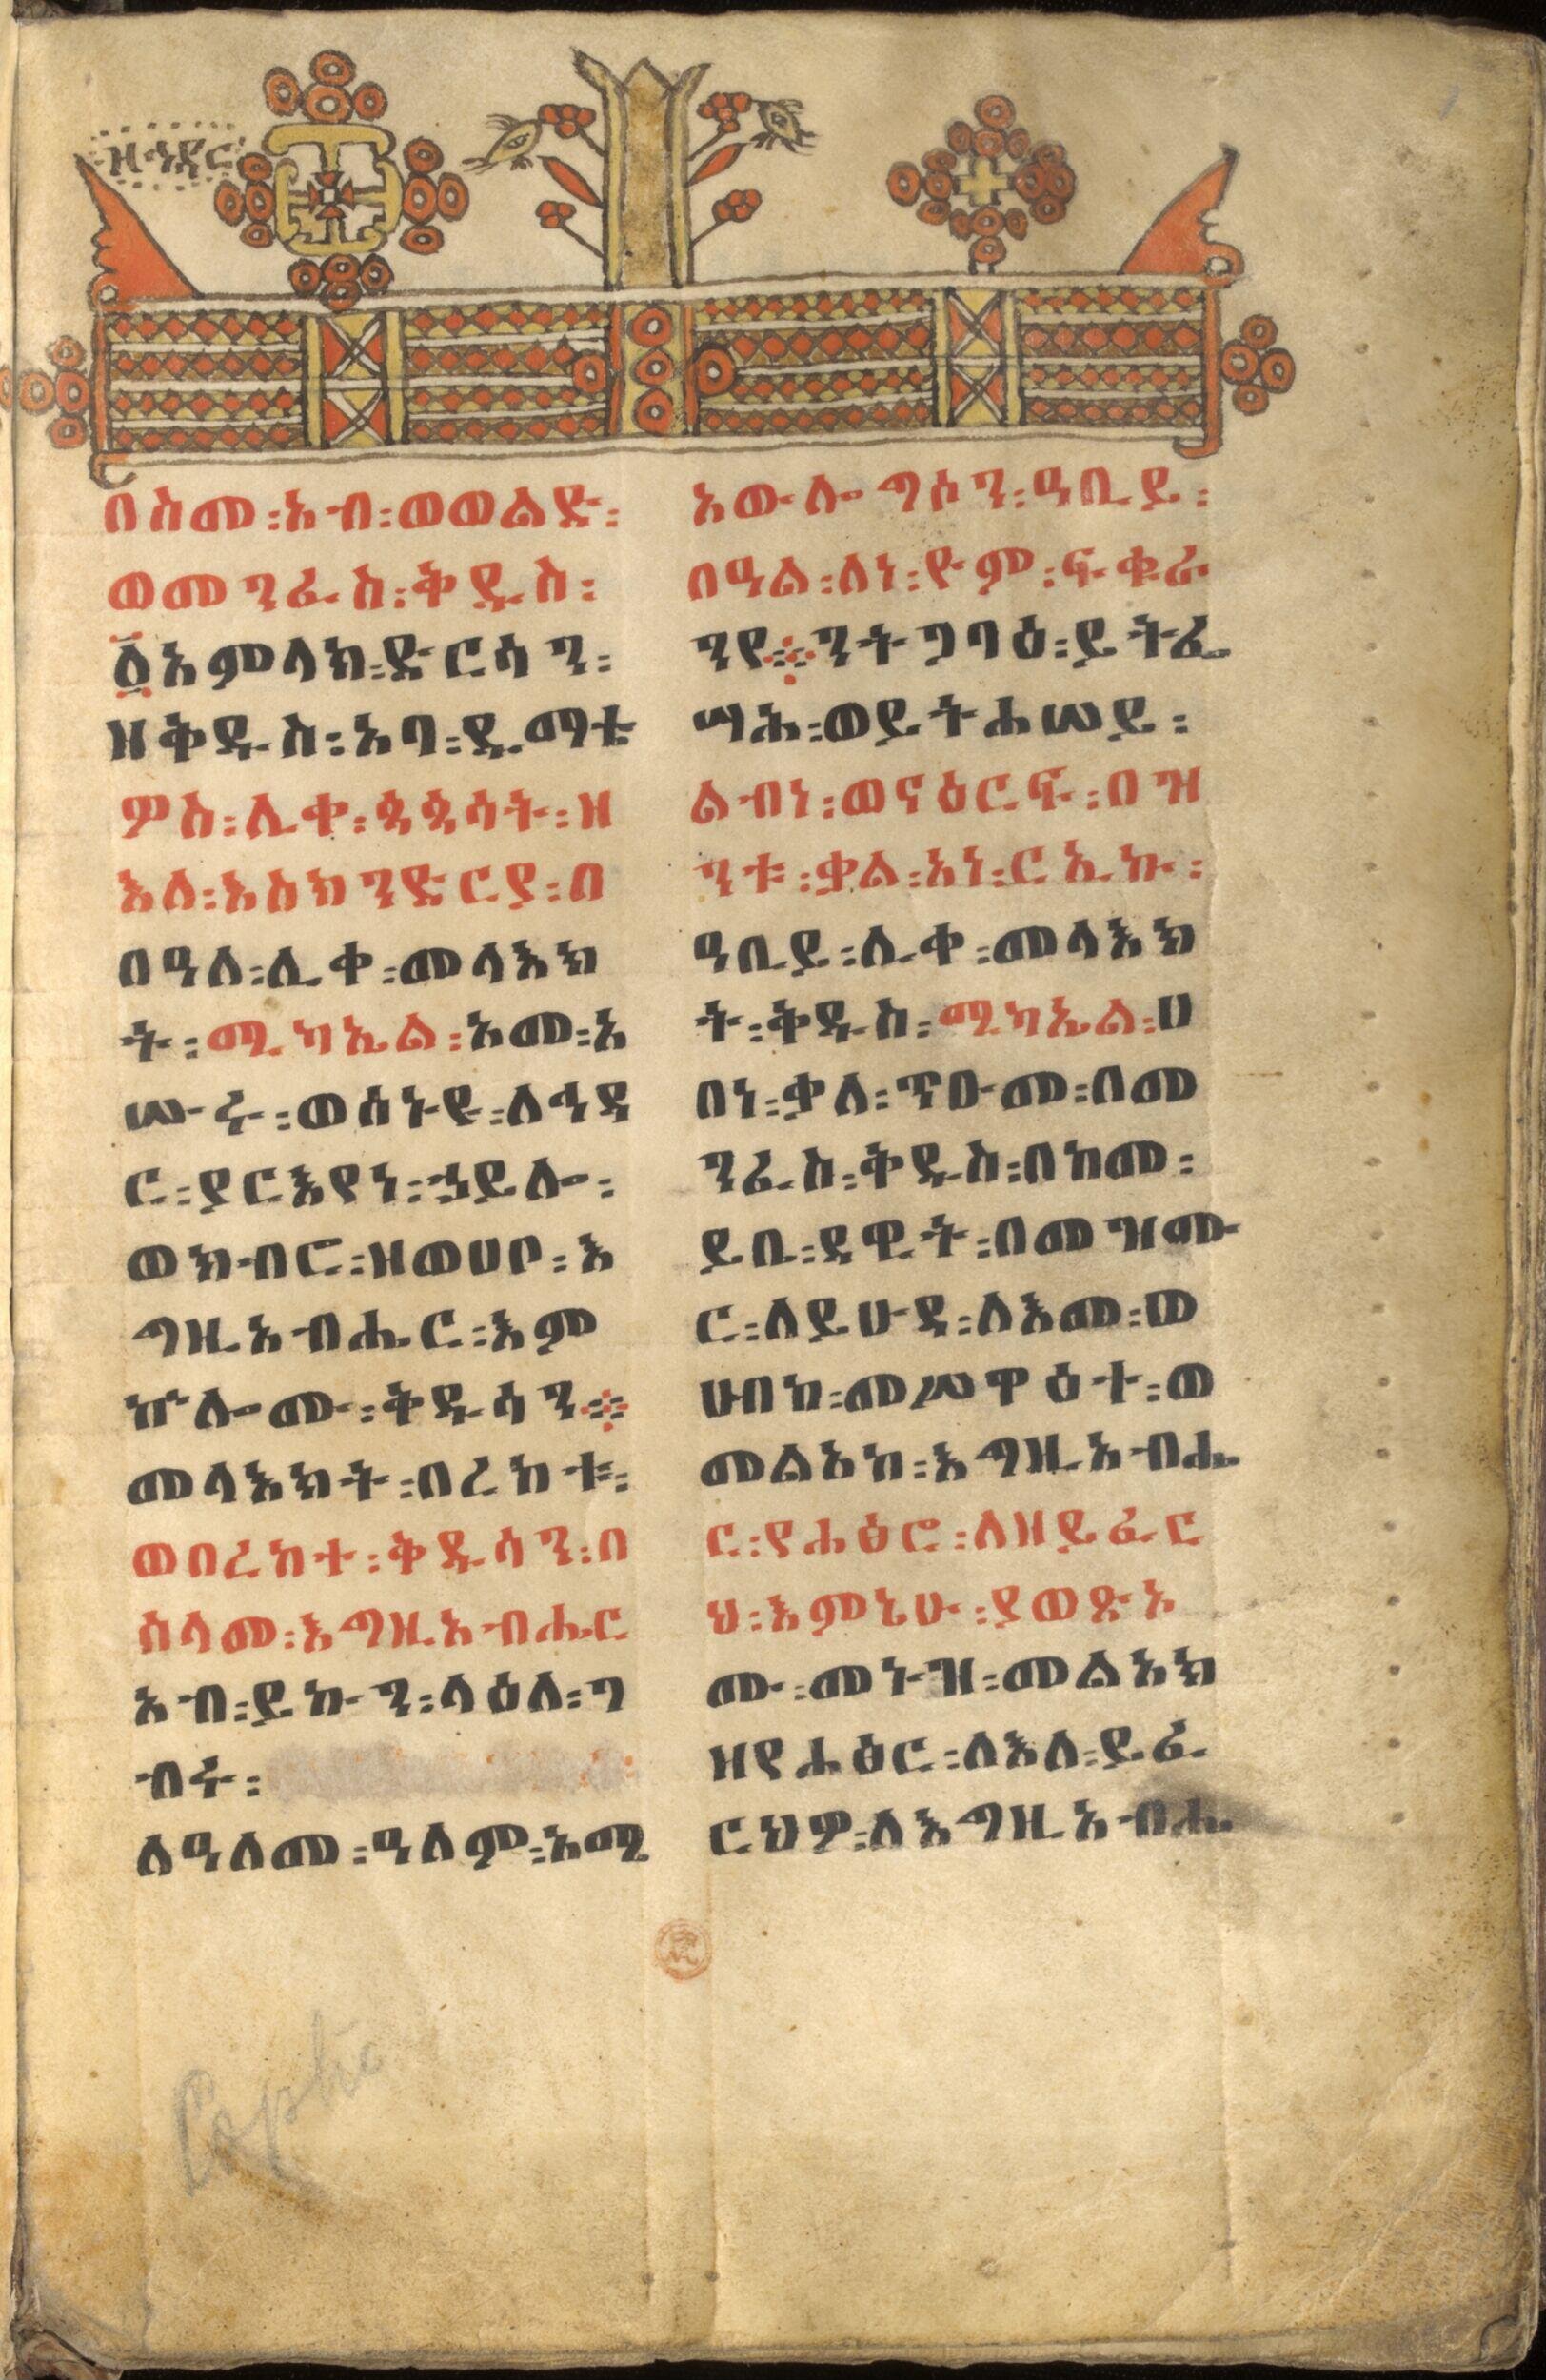 ዘኅዳር
በስመ፡አብ፡ወወልድ፡
ወመንፈስ፡ቅዱስ፡
፩አምላክ፡ድርሳን፡
ዘቅዱስ፡አባ፡ዲማቴ
ዎስ፡ሊቀ፡ጳጳሳት፡ዘ
እለ፡እስክንድርያ፡በ
በዓለ፡ሊቀ፡መላእክ
ት፡ሚካኤል፡አመ፡አ
ሡሩ፡ወሰኑዩ፡ለኅዳ
ር፡ያርእየነ፡ኃይሎ፡
ወክብሮ፡ዘወሀቦ፡እ
ግዚአብሔር፡እም
ኵሎሙ፡ቅዱሳን፨
መላእክት፡በረከቱ፡
ወበረከተ፡ቅዱሳን፡በ
ስላመ፡እግዚአብሔር
አብ፡ይኩን፡ላዕለ፡ገ
ብሩ፡
ለዓለመ፡ዓለም፡አሜ
አውሎግሶን፡ዓቢይ፡
በዓል፡ለነ፡ዮም፡ፍቁራ
ንየ፨ንትጋባዕ፡ይትፈ
ሣሕ፡ወይትሐሠይ፡
ልብነ፡ወናዕርፍ፡በዝ
ንቱ፡ቃል፡አነ፡ርኢኩ፡
ዓቢይ፡ሊቀ፡መላእክ
ት፡ቅዱስ፡ሚካኤል፡ሀ
በነ፡ቃለ፡ጥዑመ፡በመ
ንፈስ፡ቅዱስ፡በከመ፡
ይቤ፡ዳዊት፡በመዝሙ
ር፡ለይሁዳ፡ለእመ፡ወ
ሀብከ፡መሥዋዕተ፡ወ
መልአከ፡እግዚአብሔ
ር፡የሐፅሮ፡ለዘይፈር
ህ፡እምኔሁ፡ያወጽኦ
ሙ፡መኑዝ፡መልአክ
ዘየሐፅር፡ለእለ፡ይፈ
ርህዎ፡ለእግዚአብሔ
Cophte